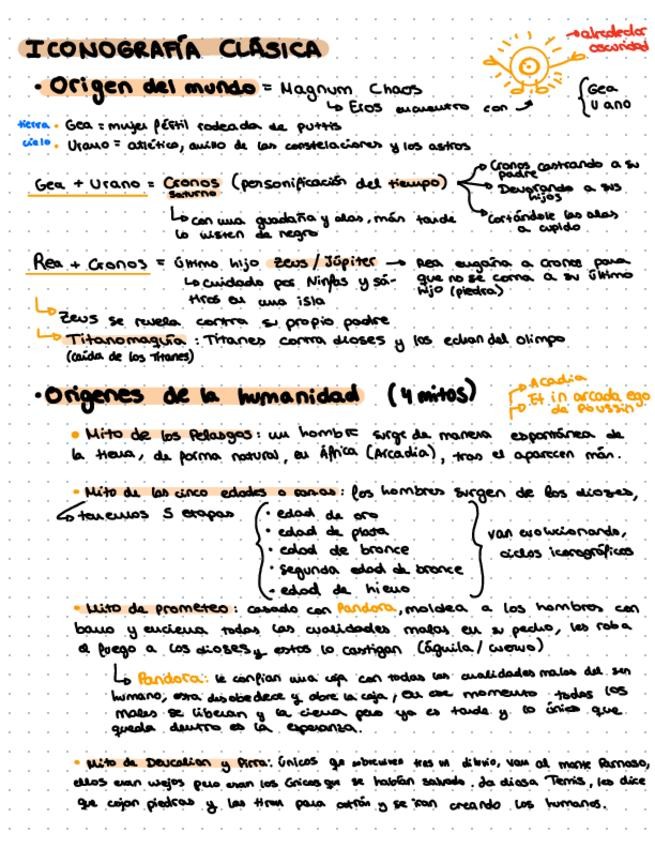 ICONOGRAFÍA CLÁSICA
→ alrededor oscuridad
• Origen del mundo = Magnum Chaos
↳ Eros encuentro con → { Gea
Urano
tierra • Gea = mujer fértil rodeada de puttis
cielo • Urano = atlético, anillo de las constelaciones y los astros
Gea + Urano = Cronos (personificación del tiempo)
Saturno
→ Cronos castrando a su padre
→ Devorando a sus hijos
→ Cortándole las alas a cupido
↳ con una guadaña y alas, más tarde
lo visten de negro
Rea + Cronos = último hijo Zeus / Júpiter → Rea engaña a Cronos para
que no se coma a su último
hijo (piedra)
↳ cuidado por Ninfas y sá-
tiros en una isla
↳ Zeus se revela contra su propio padre
↳ Titanomaquia : Titanes contra dioses y los echan del olimpo
(caída de los titanes)
• Origenes de la humanidad (4 mitos)
→ Acadia
→ Et in arcada ego
de Poussin
• Mito de los Pelasgos: un hombre surge de manera espontánea de
la tierra, de forma natural, en África (Arcadia), tras el aparecen más.
• Mito de las cinco edades o razas: los hombres surgen de los dioses,
↳ tenemos 5 etapas
• edad de oro
• edad de plata
• edad de bronce
• segunda edad de bronce
• edad de hierro
van evolucionando,
ciclos iconográficos
• Mito de prometeo: casado con Pandora, moldea a los hombres con
barro y encierra todas las cualidades malas en su pecho, les roba
el fuego a los dioses y estos lo castigan (águila / cuervo)
↳ Pandora: le confian una caja con todas las cualidades malas del ser
humano, esta desobedece y abre la caja, en ese momento todos los
males se liberan y la cierra pero ya es tarde y lo único que
queda dentro es la esperanza.
• Mito de Deucalion y Pirra: únicos q sobreviven tras un diluvio, van al monte Parnaso,
ellos eran viejos pero eran los únicos que se habían salvado. La diosa Temis, les dice
que cojan piedras y las tiren para atrás y se iran creando los humanos.